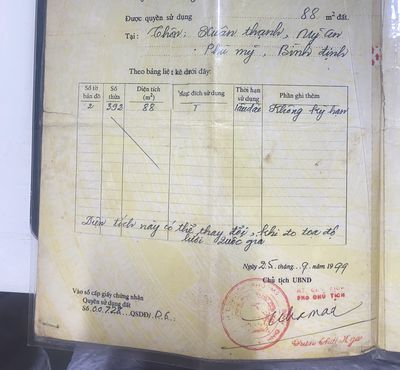 Được quyền sử dụng 88 m² đất.
Tại: Thôn: Xuân thạnh, Mỹ An
Phù mỹ, Bình định
Theo bảng liệt kê dưới đây:
Số tờ bản đồ | Số thửa | Diện tích (m²) | Mục đích sử dụng | Thời hạn sử dụng | Phần ghi thêm
2 | 392 | 88 | T | Lâu dài | Không kỳ hạn
Diện tích này có thể thay đổi, khi đo tọa độ
lưới quốc gia
Ngày 25 tháng 9 năm 1999
Chủ tịch UBND
KT. CHỦ TỊCH
PHÓ CHỦ TỊCH
Vào sổ cấp giấy chứng nhận
Quyền sử dụng đất
Số 00728 QSDĐ/